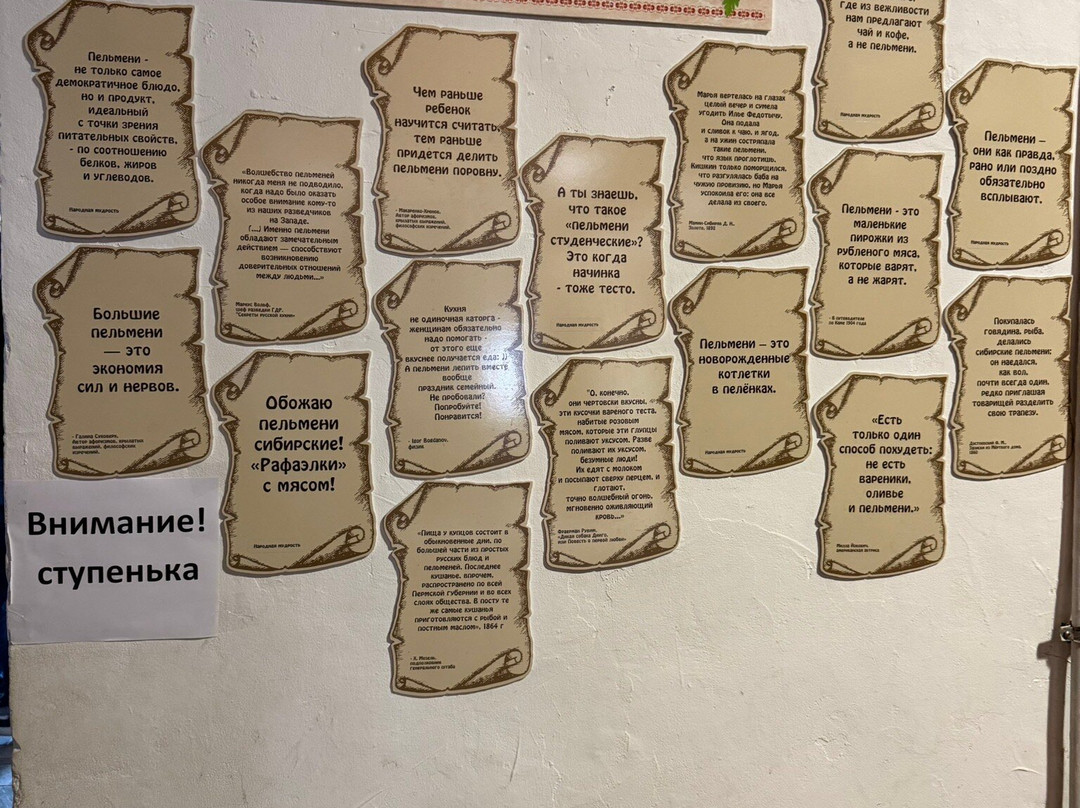 Пельмени -
не только самое
демократичное блюдо,
но и продукт,
идеальный
с точки зрения
питательных свойств,
- по соотношению
белков, жиров
и углеводов.
Народная мудрость
Большие
пельмени
— это
экономия
сил и нервов.
- Галина Суховерх,
Автор афоризмов, крылатых
выражений, философских
изречений.
Внимание!
ступенька
«Волшебство пельменей
никогда меня не подводило,
когда надо было оказать
особое внимание кому-то
из наших разведчиков
на Западе.
(...) Именно пельмени
обладают замечательным
действием — способствуют
возникновению
доверительных отношений
между людьми...»
Маркус Вольф,
шеф разведки ГДР,
"Секреты русской кухни"
Обожаю
пельмени
сибирские!
«Рафаэлки»
с мясом!
Народная мудрость
Чем раньше
ребенок
научится считать,
тем раньше
придется делить
пельмени поровну.
Автор афоризмов,
крылатых выражений,
философских изречений.
Кухня
не одиночная каторга -
женщинам обязательно
надо помогать -
от этого еще
вкуснее получается еда; ))
А пельмени лепить вместе
вообще
праздник семейный.
Не пробовали?
Попробуйте!
Понравится!
- Igor Bogdanov,
физик
«Пища у купцов состоит в
обыкновенные дни, по
большей части из простых
русских блюд и
пельменей. Последнее
кушанье, впрочем,
распространено по всей
Пермской губернии и во всех
слоях общества. В посту те
же самые кушанья
приготовляются с рыбой и
постным маслом». 1864 г
- Х. Мозель,
подполковник
генерального штаба
А ты знаешь,
что такое
«пельмени
студенческие»?
Это когда
начинка
- тоже тесто.
Народная мудрость
"О, конечно,
они чертовски вкусны,
эти кусочки вареного теста,
набитые розовым
мясом, которые эти глупцы
поливают уксусом. Разве
поливают их уксусом,
безумные люди!
Их едят с молоком
и посыпают сверху перцем, и
глотают,
точно волшебный огонь,
мгновенно оживляющий
кровь..."
Фраерман Рувим,
«Дикая собака Динго,
или Повесть о первой любви»
Марья вертелась на глазах
целый вечер и сумела
угодить Илье Федотычу.
Она подала
и сливок к чаю, и ягод,
а на ужин состряпала
такие пельмени,
что язык проглотишь.
Кишкин только поморщился,
что разгулялась баба на
чужую провизию, но Марья
успокоила его: она все
делала из своего.
Мамин-Сибиряк Д. Н.,
Золото, 1892
Пельмени – это
новорожденные
котлетки
в пелёнках.
Народная мудрость
где из вежливости
нам предлагают
чай и кофе,
а не пельмени.
Народная мудрость
Пельмени - это
маленькие
пирожки из
рубленого мяса,
которые варят,
а не жарят.
- В путеводителе
по Каме 1904 года
«Есть
только один
способ похудеть:
не есть
вареники,
оливье
и пельмени.»
Милла Йовович,
американская актриса
Пельмени –
они как правда,
рано или поздно
обязательно
всплывают.
Народная мудрость
Покупалась
говядина, рыба,
делались
сибирские пельмени;
он наедался,
как вол,
почти всегда один,
редко приглашая
товарищей разделить
свою трапезу.
Достоевский Ф. М.,
Записки из Мёртвого дома,
1860